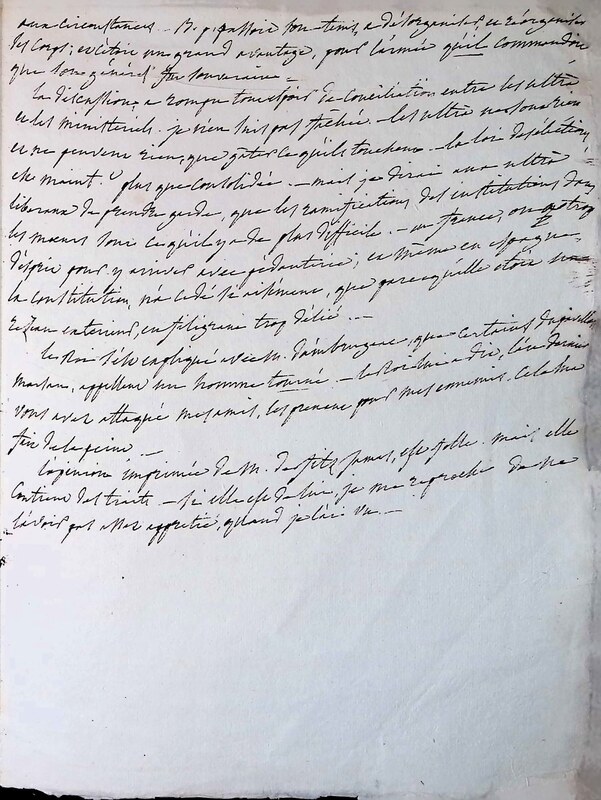 aux circonstances — B. p. passoit son tems, a désorganiser, et réorganiser
des Corps; et c'étoit un grand avantage, pour l'armée qu'il commandoit
que son général fut souverain —
La discussion, a rompu tout espoir de Conciliation entre les ultra
et les ministériels. je n'en suis pas fachée. les ultra ne sont rien
et ne peuvent rien, que gâter ce qu'ils touchent — la loi des élections,
est maint. plus que Consolidée — mais je dirai aux ultra
liberaux de prendre garde, que les ramifications des institutions dans
les moeurs sont ce qu'il y a de plus difficile — en france, on a trop
d'esprit pour y arriver avec pédanterie; et même en espagne,
la constitution, n'a cédé si aisément, que parce qu'elle étoit
en filigrane trop délié —
Le Roi s'est expliqué avec M. d'ambrugeac, que certains du pavillon
Marsan, appellent un homme tourné — le Roi lui a dit,
vous avez attaqué mes amis, les prenant pour mes ennemis. Cela m'a
fait de la peine —
L'opinion imprimée de M. de fitz James, est folle. mais elle
Contient des traits — si elle est de lui, je me reproche de ne
l'avoir pas assez apprécié, quand je l'ai vu —